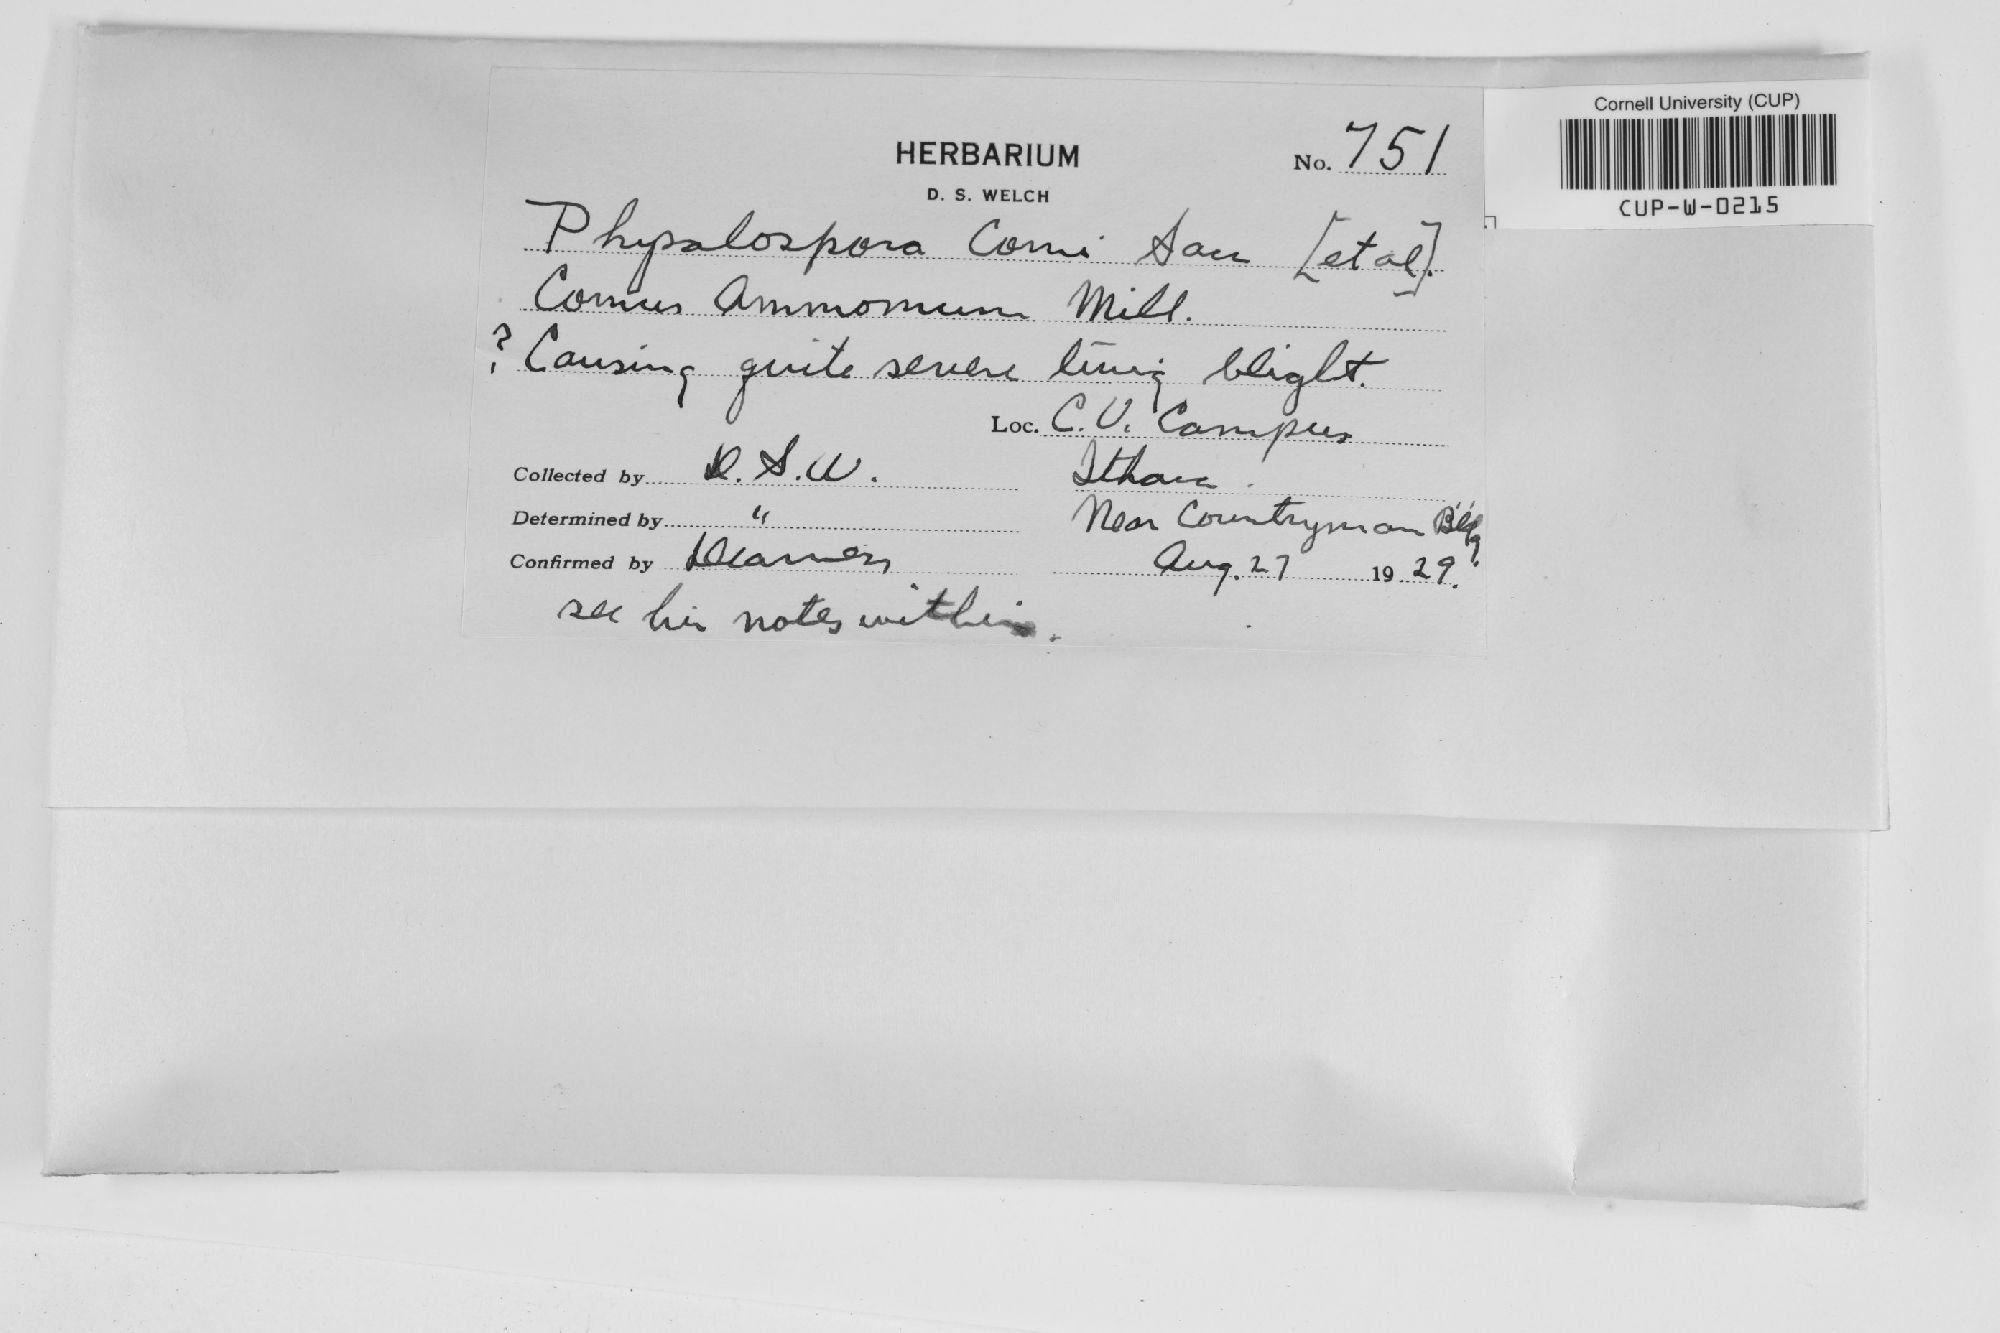 Cornell University (CUP)
CUP-W-0215
HERBARIUM
No. 751
D. S. WELCH
Physalospora Corni Sacc [et al].
Cornus Ammomum Mill.
? Causing quite severe twig blight.
Loc. C.U. Campus
Collected by D.S.W.
Ithaca.
Determined by "
Near Countryman Bldg.
Confirmed by Dearness
Aug. 27 1929.
see his notes within.